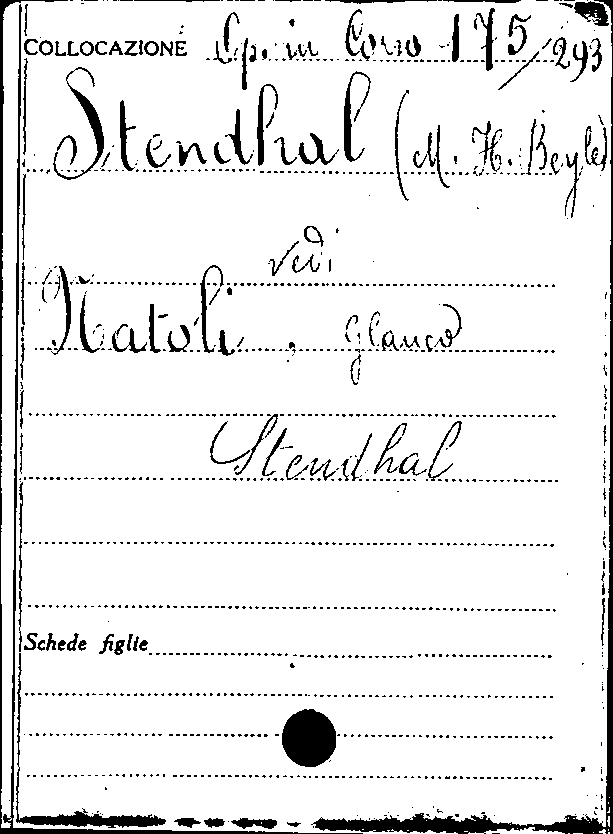 COLLOCAZIONE Op. in Corso 175/293
Stendhal (M. H. Beyle)
vedi
Natoli, Glauco
Stendhal
Schede figlie